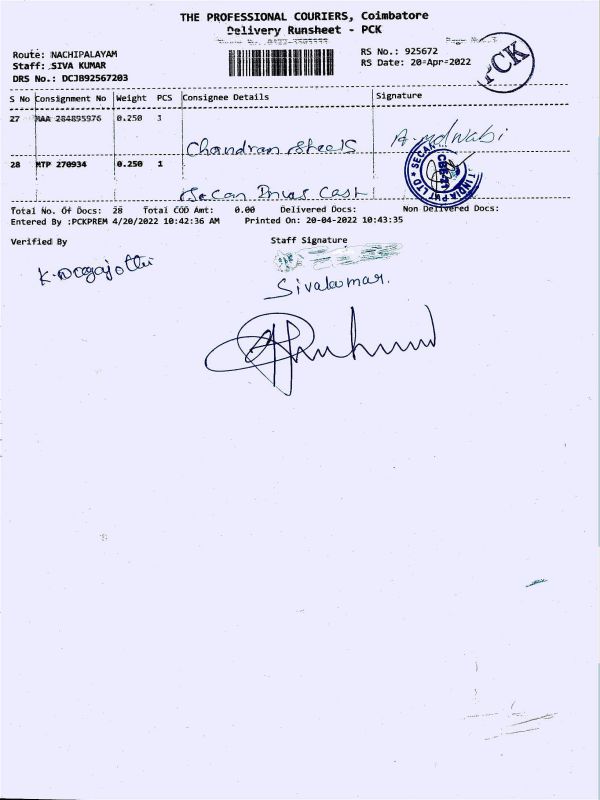 THE PROFESSIONAL COURIERS, Coimbatore
Delivery Runsheet - PCK
PCK
Route: NACHIPALAYAM
Staff: SIVA KUMAR
DRS No.: DCJB92567203
RS No.: 925672
RS Date: 20-Apr-2022
S No Consignment No Weight PCS Consignee Details Signature
27 MAA 284895976 0.250 3
Chandran Steels
28 MTP 270934 0.250 1
Secan Invas Cast
SECAN INDIA PVT LTD
Total No. Of Docs: 28 Total COD Amt: 0.00 Delivered Docs: Non Delivered Docs:
Entered By :PCKPREM 4/20/2022 10:42:36 AM Printed On: 20-04-2022 10:43:35
Verified By Staff Signature
Sivakumar.